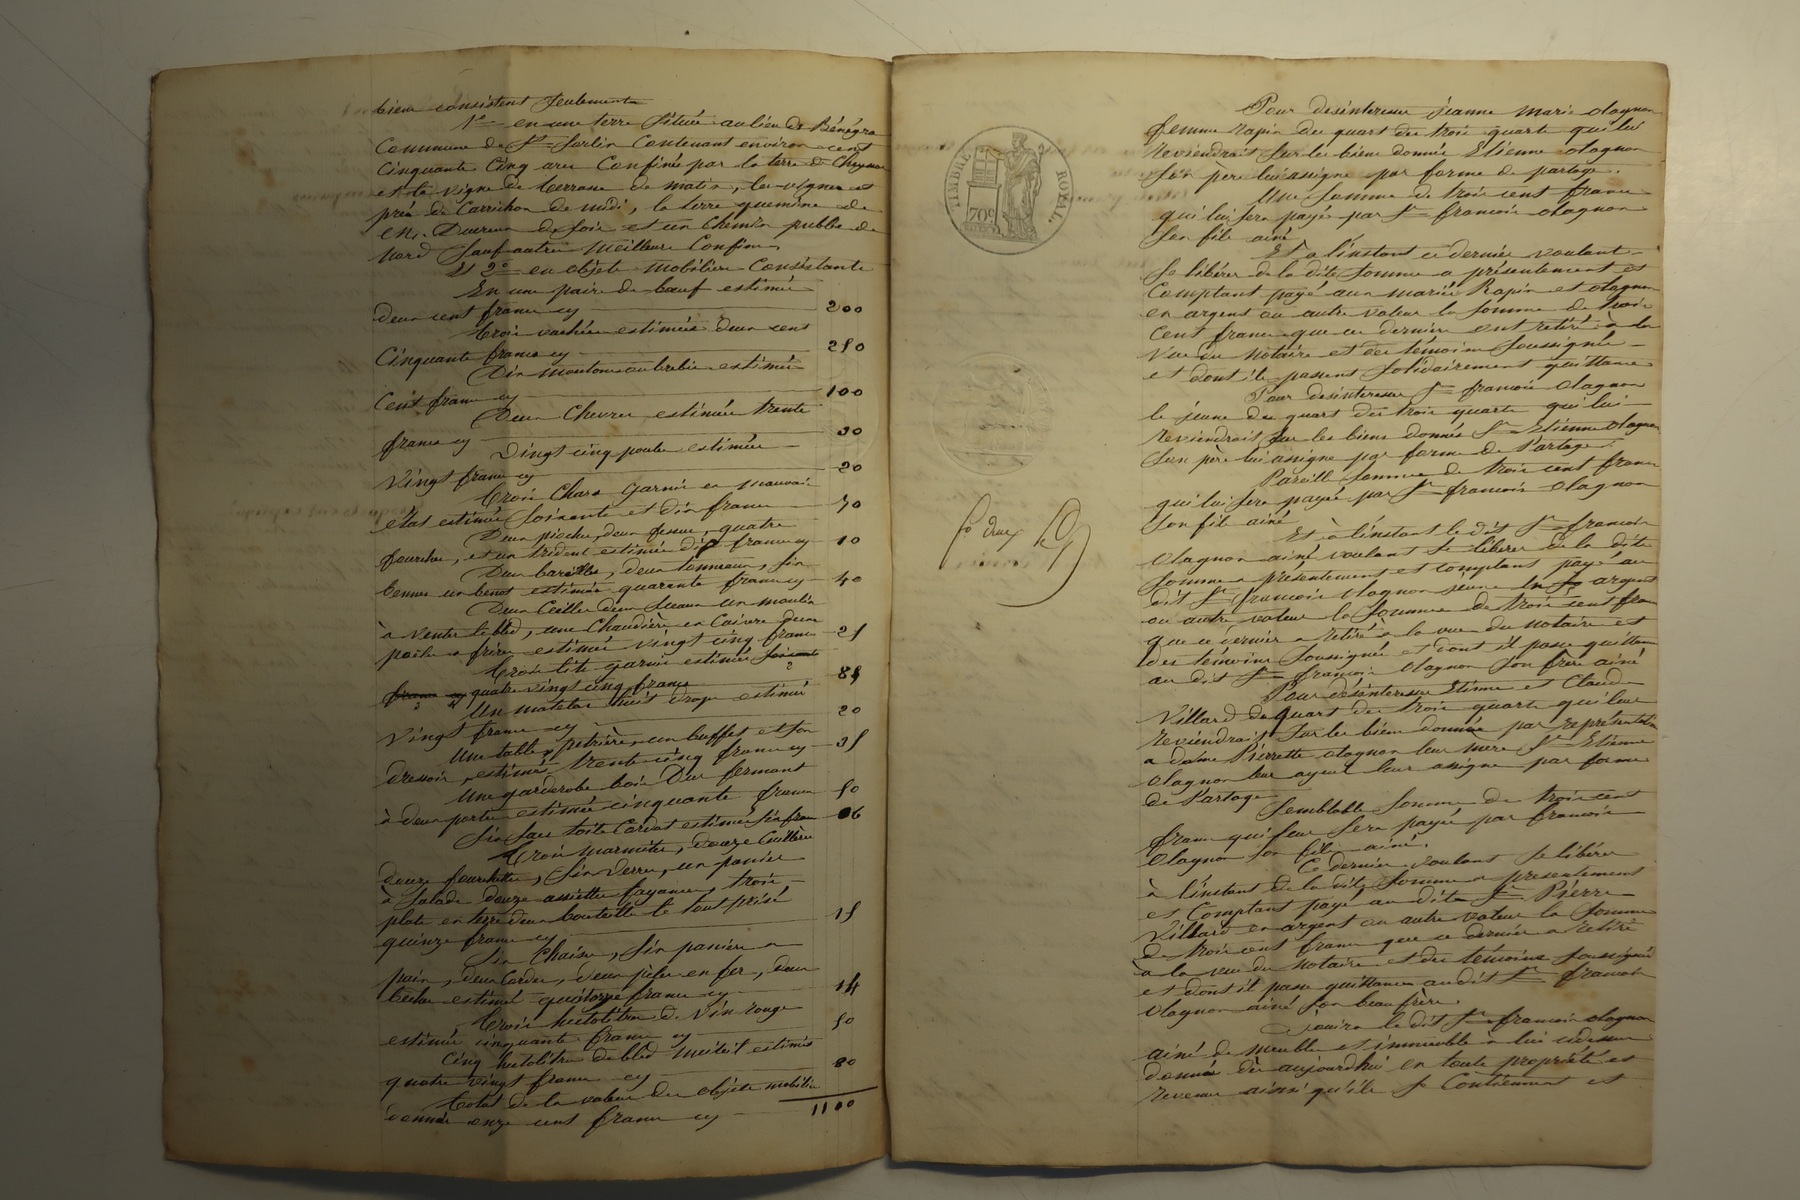 bien consistent seulement
1º en une terre située au lieu de Bénégra
Commune de St Sorlin Contenant environ cent
Cinquante Cinq ares Confinée par la terre de
et la vigne de terrasse de matin, les vignes et
prés de Carrichon de midi, la terre de
de soir et un Chemin public de
nord sauf autre meilleurs Confins
Et 2º en objets mobiliers Consistants
En une paire de bœuf estimée
deux cent francs cy 200
trois vaches estimées deux cent
Cinquante francs cy 250
Dix moutons ou brebis estimés
Cent francs cy 100
Deux Chevres estimées trente
francs cy 30
Vingt cinq poules estimées
Vingt francs cy 20
trois Chars garnis en mauvais
état estimés Soixante et dix francs 70
Deux pioches, deux quatre
fourches, et un trident estimés dix francs cy 10
Deux barilles, deux tonneaux, six
bennes un benot estimés quarante francs cy 40
Deux Seaux un moulin
à venter le bled, une Chaudière en Cuivre deux
poeles a frire estimés vingt cinq francs 25
trois lits garnis estimés soixante
francs cy quatre vingt cinq francs 85
Un matelas huit draps estimés
Vingt francs cy 20
Une table pétrière, un buffet et son
dressoir, estimés trente cinq francs cy 35
Une garderobe bois Dur fermant
à deux portes estimée cinquante francs 50
Six sacs toile estimés six francs 06
trois marmites, douze Cuillères
douze fourchettes, Six Verres, un panier
à Salade douze assiettes fayance, trois
plats en terre deux bouteilles le tout prisé
quinze francs cy 15
Six Chaises, Six paniers a
pain, deux Cordes, deux en fer, deux
estimés quatorze francs cy 14
trois hectolitres de Vin rouge
estimés cinquante francs cy 50
Cinq hectolitres de bled méteil estimés
quatre vingt francs cy 80
total de la valeur des objets mobiliers
donnés onze cent francs cy 1100
TIMBRE ROYAL
70c
Pour désintéresser jeanne marie olagnon
femme Rapin du quart des trois quarts qui lui
reviendrait sur les biens donnés Etienne olagnon
son pere lui assigne par forme de partage.
Une somme de trois cent francs
qui lui sera payée par Sr francois olagnon
son fils ainé
Et à l'instant ce dernier voulant
se libérer de la dite somme a présentement et
Comptant payé aux mariés Rapin et olagnon
en argent ou autre valeur la somme de trois
cent francs que ces derniers ont retiré à la
vue du notaire et des témoins soussignés
et dont ils passent solidairement quittance
Pour désintéresser Sr francois olagnon
le jeune du quart des trois quarts qui lui
reviendrait sur les biens donnés Sr Etienne olagnon
son père lui assigne par forme de Partage
Pareille somme de trois cent francs
qui lui sera payée par Sr francois olagnon
son fils ainé
Et à l'instant le dit Sr francois
olagnon ainé voulant se libérer de la dite
somme a présentement et comptant payé au
dit Sr francois olagnon jeune en argent
ou autre valeur la somme de trois cent francs
que ce dernier a retiré à la vue du notaire et
des témoins soussignés et dont il passe quittance
au dit Sr francois olagnon son frère ainé
Pour désintéresser Etienne et Claude
Villard du quart des trois quarts qui leur
reviendrait sur les biens donnés par représentation
a dame Pierrette olagnon leur mere Sr Etienne
olagnon leur ayeul leur assigne par forme
de Partage
Semblable somme de trois cent
francs qui leur sera payée par francois
olagnon son fils ainé.
Ce dernier voulant se libérer
à l'instant de la dite somme a présentement
et Comptant payé au dit Sr Pierre
Villard en argent ou autre valeur la somme
de trois cent francs que ce dernier a retiré
à la vue du notaire et des témoins soussignés
et dont il passe quittance au dit Sr francois
olagnon ainé son beau frère.
Jouira le dit Sr francois olagnon
ainé des meubles et immeubles a lui cidessus
donnés dès aujourdhui en toute propriété et
revenus ainsi qu'ils se Contiennent et